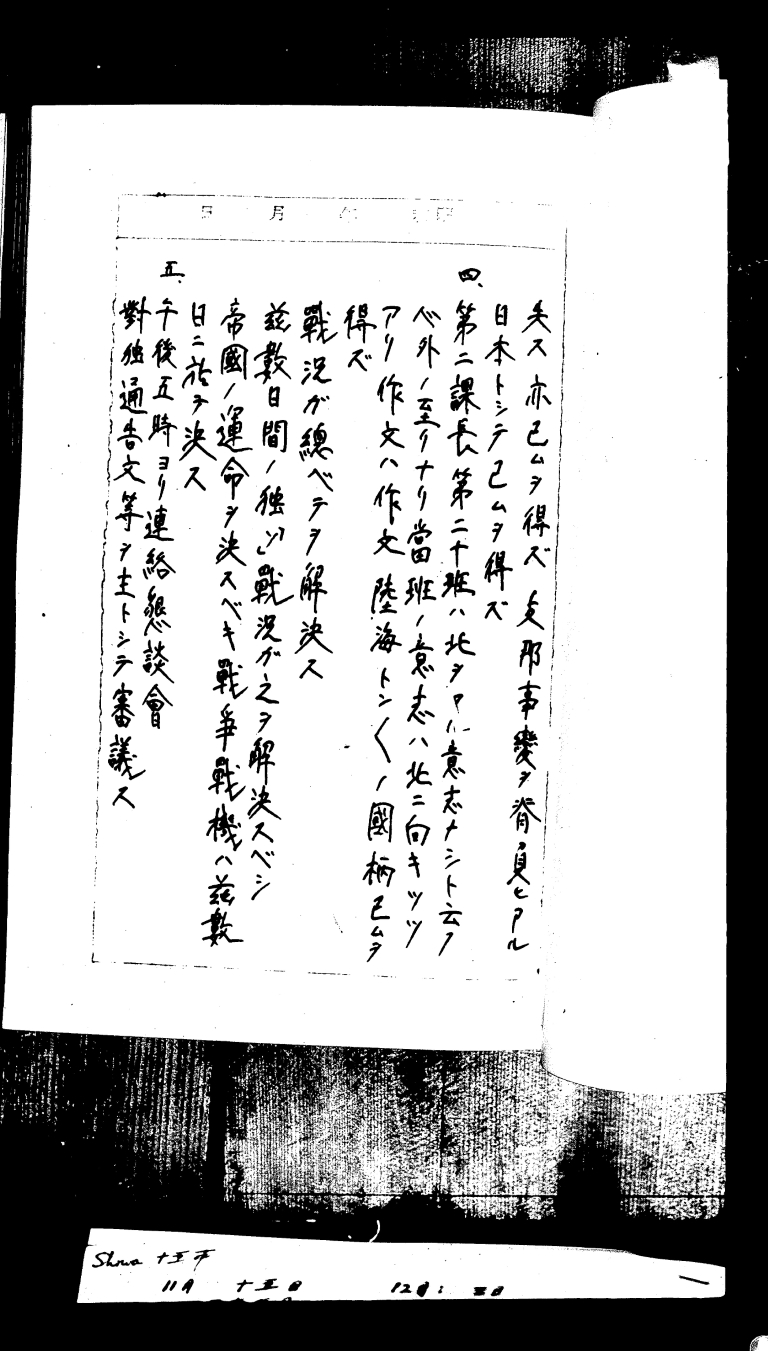 年 月
失ス 亦已ムヲ得ズ 支那事變ヲ脊負ヒアル
日本トシテ已ムヲ得ズ
四、第二課長第二十班ハ北ヲヤル意志ナシト云フ
心外ノ至リナリ當班ノ意志ハ北ニ向キツツ
アリ 作文ハ作文 陸海トン〳〵ノ國柄已ムヲ
得ズ
戰況ガ總ベテヲ解決ス
茲數日間ノ独「ソ」戰況ガ之ヲ解決スベシ
帝國ノ運命ヲ決スベキ戰爭戰機ハ茲數
日ニ於ヲ決ス
五、午後五時ヨリ連絡懇談會
對独通告文等ヲ主トシテ審議ス
Showa 十五年
11月 十五日 12月: 三日